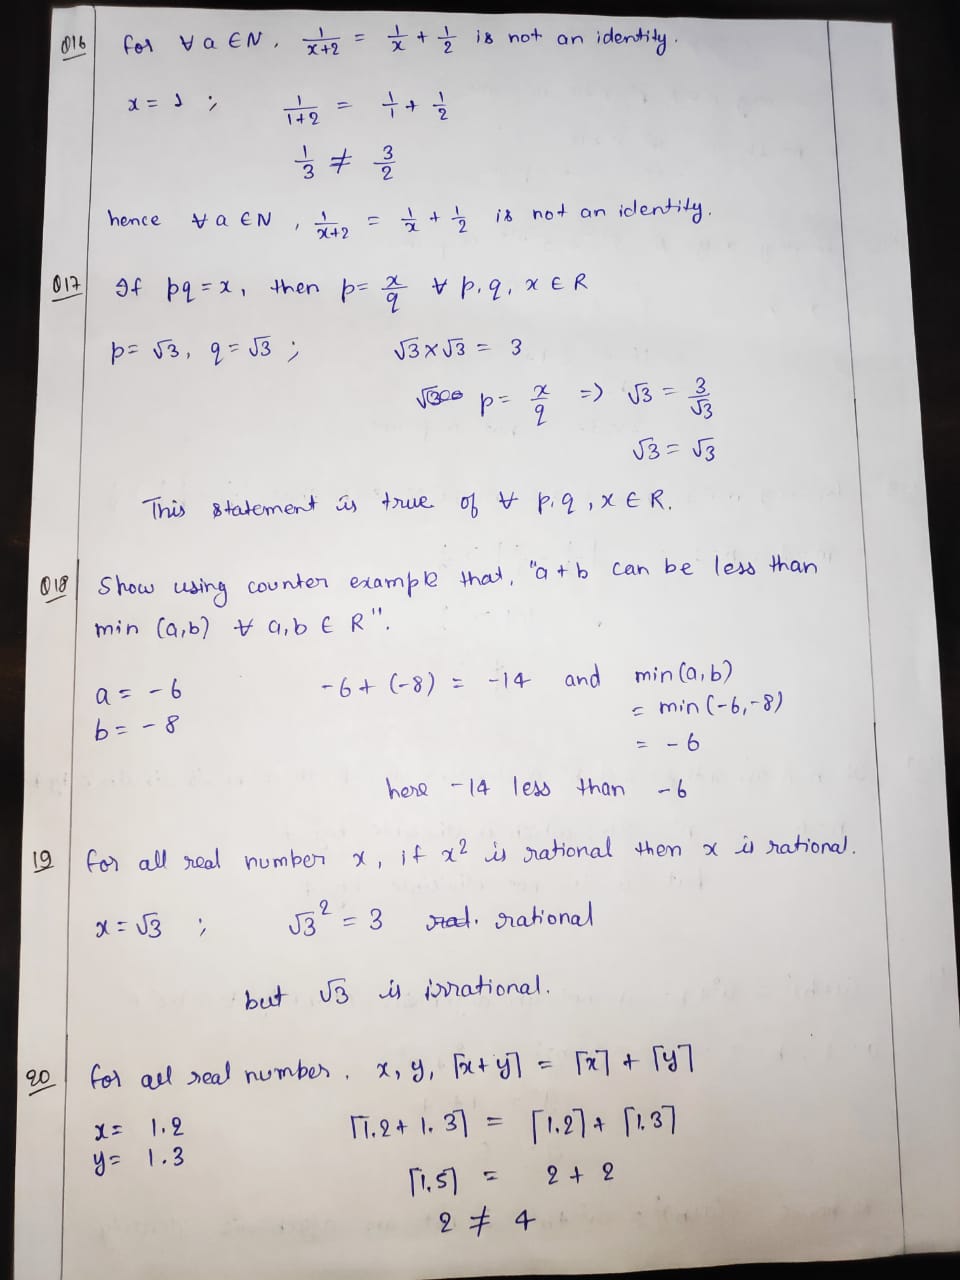 Q16 for ∀ a ∈ N, 1/(x+2) = 1/x + 1/2 is not an identity.
x = 1 ; 1/(1+2) = 1/1 + 1/2
1/3 ≠ 3/2
hence ∀ a ∈ N, 1/(x+2) = 1/x + 1/2 is not an identity.
Q17 If pq = x, then p = x/q ∀ p, q, x ∈ R
p = √3, q = √3 ; √3 × √3 = 3
p = x/q => √3 = 3/√3
√3 = √3
This statement is true of ∀ p, q, x ∈ R.
Q18 Show using counter example that, "a + b can be less than
min (a,b) ∀ a, b ∈ R".
a = -6 -6 + (-8) = -14 and min(a,b)
b = -8 = min(-6,-8)
= -6
here -14 less than -6
19 for all real number x, if x² is rational then x is rational.
x = √3 ; √3² = 3 rational
but √3 is irrational.
20 for all real number. x, y, ⌈x+y⌉ = ⌈x⌉ + ⌈y⌉
x = 1.2 ⌈1.2 + 1.3⌉ = ⌈1.2⌉ + ⌈1.3⌉
y = 1.3
⌈1.5⌉ = 2 + 2
2 ≠ 4